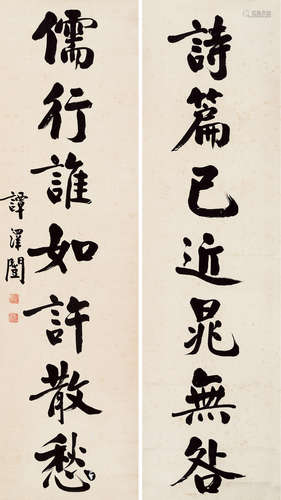 詩篇已近晁無咎
儒行誰如許散愁
譚澤闓